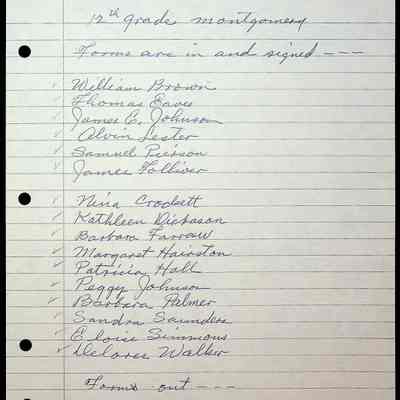 12th grade Montgomery
Forms are in and signed ---
✓ William Brown
✓ Thomas Eaves
✓ James E. Johnson
✓ Alvin Lester
✓ Samuel Pierson
✓ James Tolliver
✓ Nina Crockett
✓ Kathleen Dickason
✓ Barbara Farrow
✓ Margaret Hairston
✓ Patricia Hall
✓ Peggy Johnson
✓ Barbara Palmer
✓ Sandra Saunders
✓ Eloise Simmons
✓ Delores Walker
Forms out ---